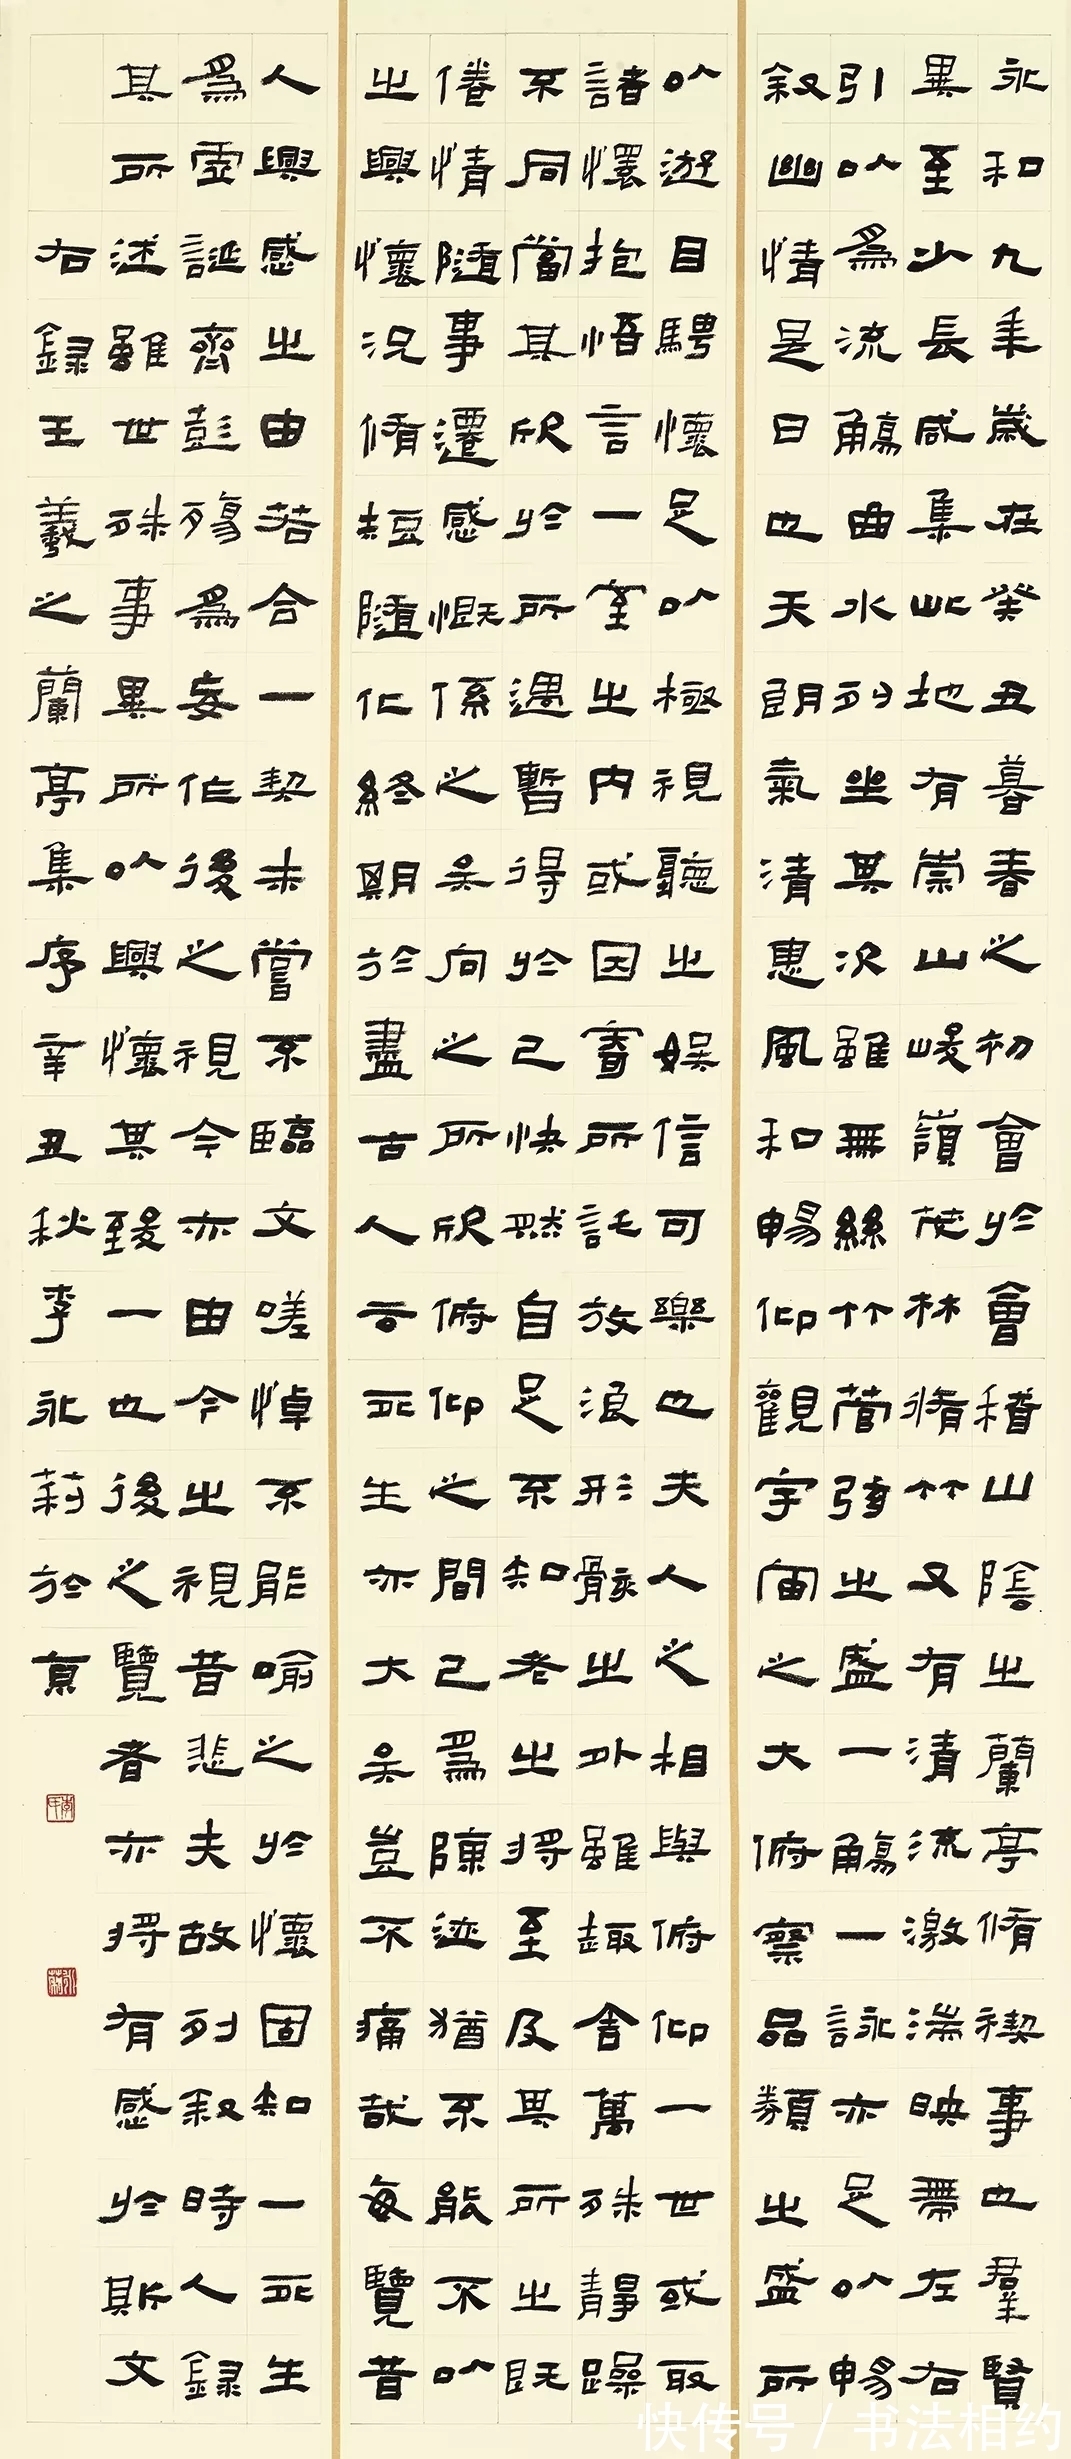 永和九年歲在癸丑暮春之初會於會稽山陰之蘭亭脩禊事也羣賢
畢至少長咸集此地有崇山峻嶺茂林脩竹又有清流激湍映帶左右
引以為流觴曲水列坐其次雖無絲竹管弦之盛一觴一詠亦足以暢
叙幽情是日也天朗氣清惠風和暢仰觀宇宙之大俯察品類之盛所
以遊目騁懷足以極視聽之娛信可樂也夫人之相與俯仰一世或取
諸懷抱悟言一室之內或因寄所託放浪形骸之外雖趣舍萬殊靜躁
不同當其欣於所遇暫得於己快然自足不知老之將至及其所之既
倦情隨事遷感慨係之矣向之所欣俯仰之間已為陳迹猶不能不以
之興懷況脩短隨化終期於盡古人云死生亦大矣豈不痛哉每覽昔
人興感之由若合一契未嘗不臨文嗟悼不能喻之於懷固知一死生
為虛誕齊彭殤為妄作後之視今亦由今之視昔悲夫故列叙時人錄
其所述雖世殊事異所以興懷其致一也後之覽者亦將有感於斯文
右錄王羲之蘭亭集序辛丑秋李永莉於京
快传号 / 书法相约